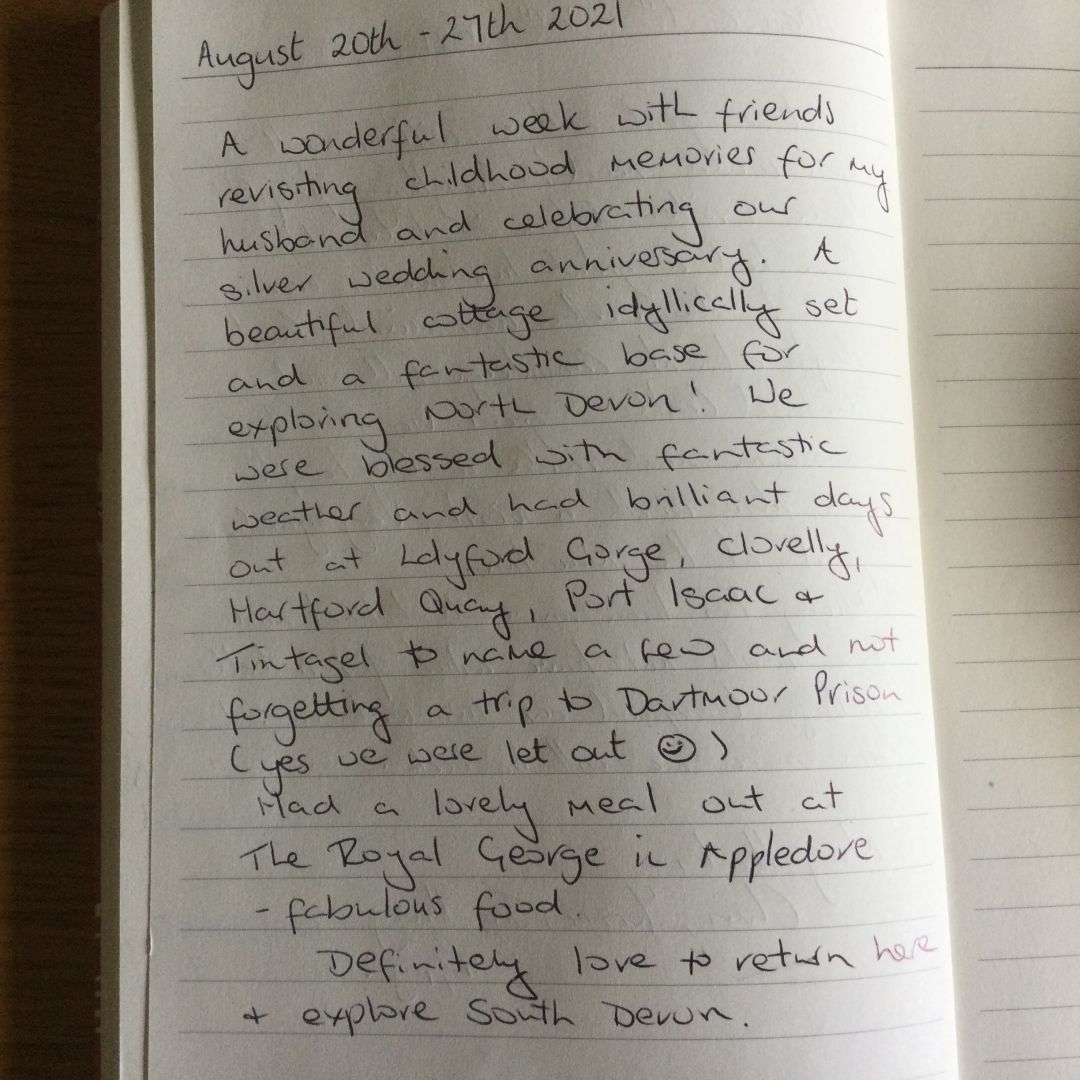 August 20th - 27th 2021
A wonderful week with friends
revisiting childhood memories for my
husband and celebrating our
silver wedding anniversary. A
beautiful cottage idyllically set
and a fantastic base for
exploring North Devon! We
were blessed with fantastic
weather and had brilliant days
out at Ldyford Gorge, Clovelly,
Hartford Quay, Port Isaac &
Tintagel to name a few and not
forgetting a trip to Dartmoor Prison
(yes we were let out ☺)
Had a lovely meal out at
The Royal George in Appledore
- fabulous food.
Definitely love to return here
+ explore South Devon.